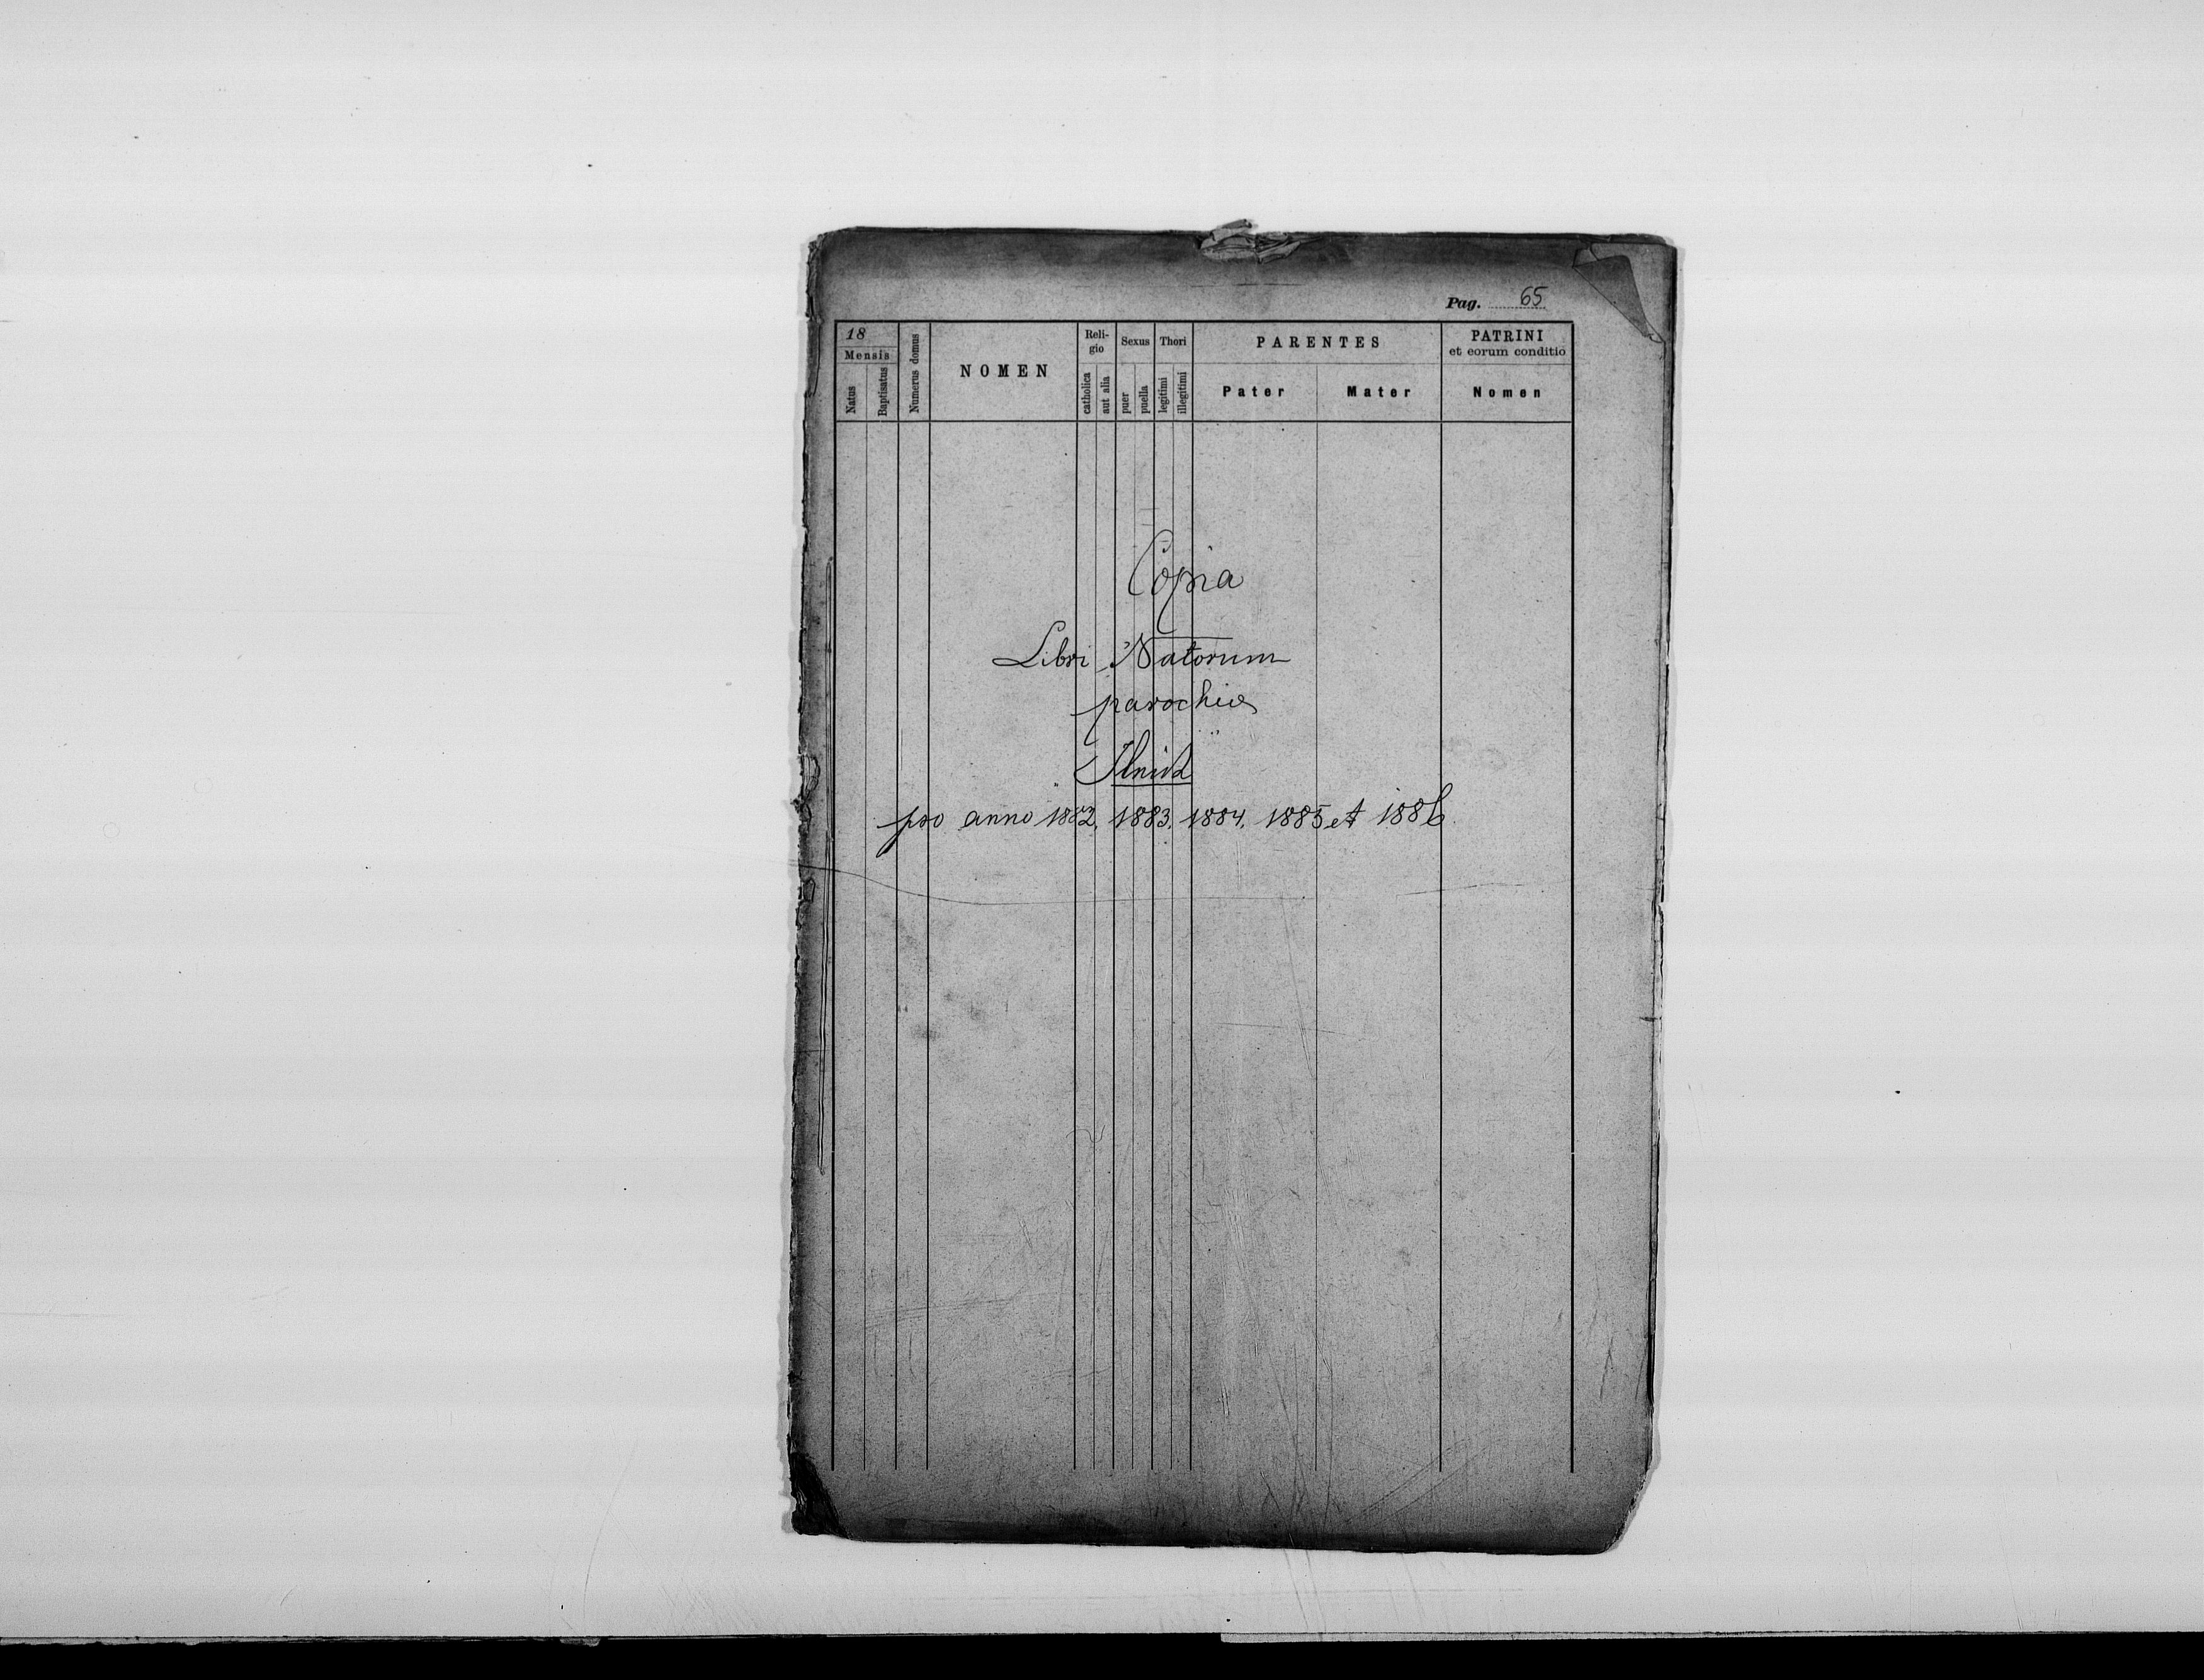 Pag. 65
18
Mensis
Natus
Baptisatus
Numerus domus
NOMEN
Reli-
gio
catholica
aut alia
Sexus
puer
puella
Thori
legitimi
illegitimi
PARENTES
Pater
Mater
PATRINI
et eorum conditio
Nomen
Copia
Libri Natorum
parochiae
Ilnik
pro anno 1882, 1883, 1884, 1885 et 1886.